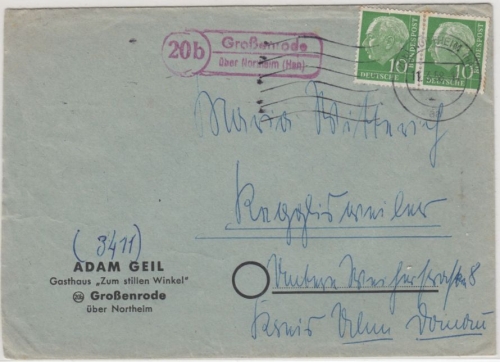 20b
Großenrode
über Northeim (Han)
10 10
DEUTSCHE BUNDESPOST
DEUTSCHE
Maria
(3411)
ADAM GEIL
Gasthaus „Zum stillen Winkel"
20b Großenrode
über Northeim
Untere
Kreis Ulm Donau